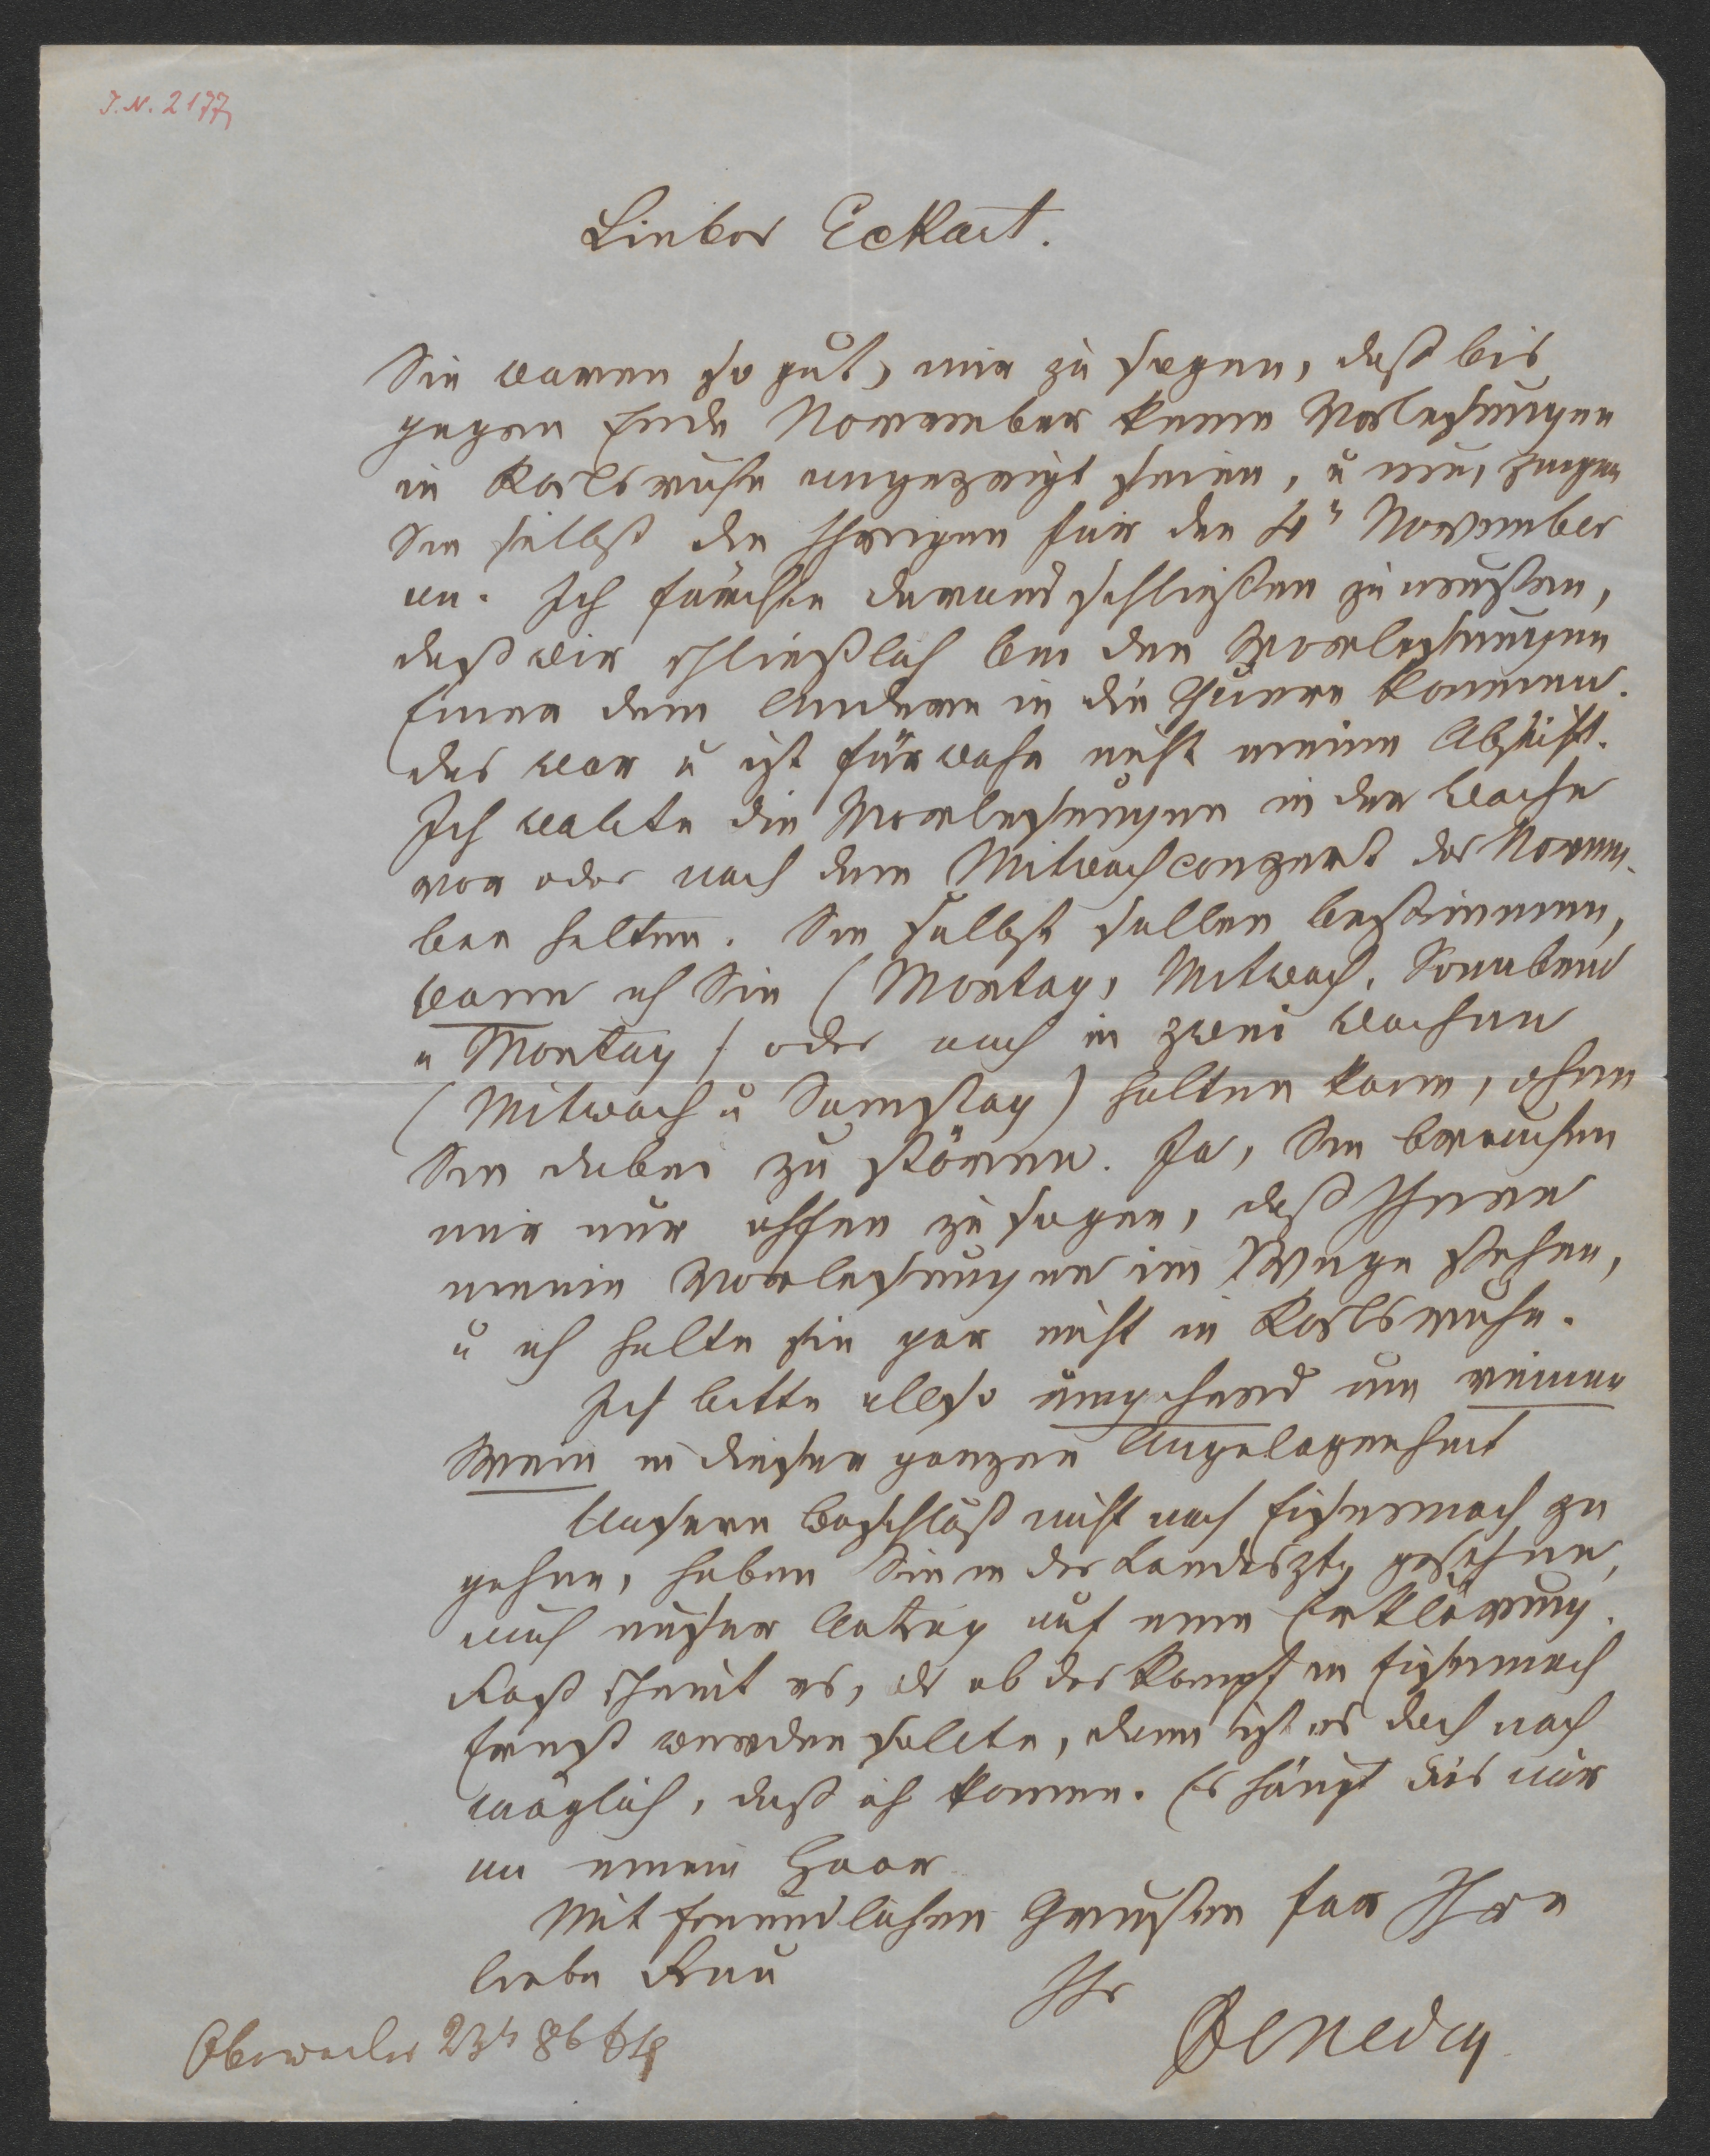 J.N. 2177
Lieber Eckart.
Sie waren so gut, mir zu sagen, daß bis
gegen Ende November keine Vorlesungen
in Karlsruhe angezeigt seien, u nun zeigen
Sie selbst die Ihrigen für den 4n November
an. Ich fürchte daraus schließen zu müssen,
daß wir schließlich bei den Vorlesungen
Einer dem Andern in die Quere kommen.
das war u ist fürwahr nicht meine Absicht.
Ich wollte die Vorlesungen in der Woche
vor oder nach dem Mitwochconzert des Novem-
ber halten. Sie selbst sollen bestimmen,
wann ich Sie (Montag, Mitwoch, Sonnabend
u Montag) oder auch in zwei Wochen
(Mitwoch u Samstag) halten kann, ohne
Sie dabei zu stören. Ja, Sie brauchen
mir nur offen zu sagen, daß Ihnen
meine Vorlesungen im Wege stehen,
u ich halte sie gar nicht in Karlsruhe.
Ich bitte also umgehend um reinen
Wein in dieser ganzen Angelegenheit
Unsern Beschluß nicht nach Eisenach zu
gehen, haben Sie in der Landesztg gesehen,
auch unser Antrag auf eine Erklärung.
Fast scheint es, als ob der Kampf in Eisenach
Ernst werden sollte, dann ist es doch noch
möglich, daß ich komme. Es hängt dies nur
an einem Haar
Mit freundlichen Grüßen für Ihre
liebe Frau
Ihr
Venedey
Oberweiler 23n 8b 64